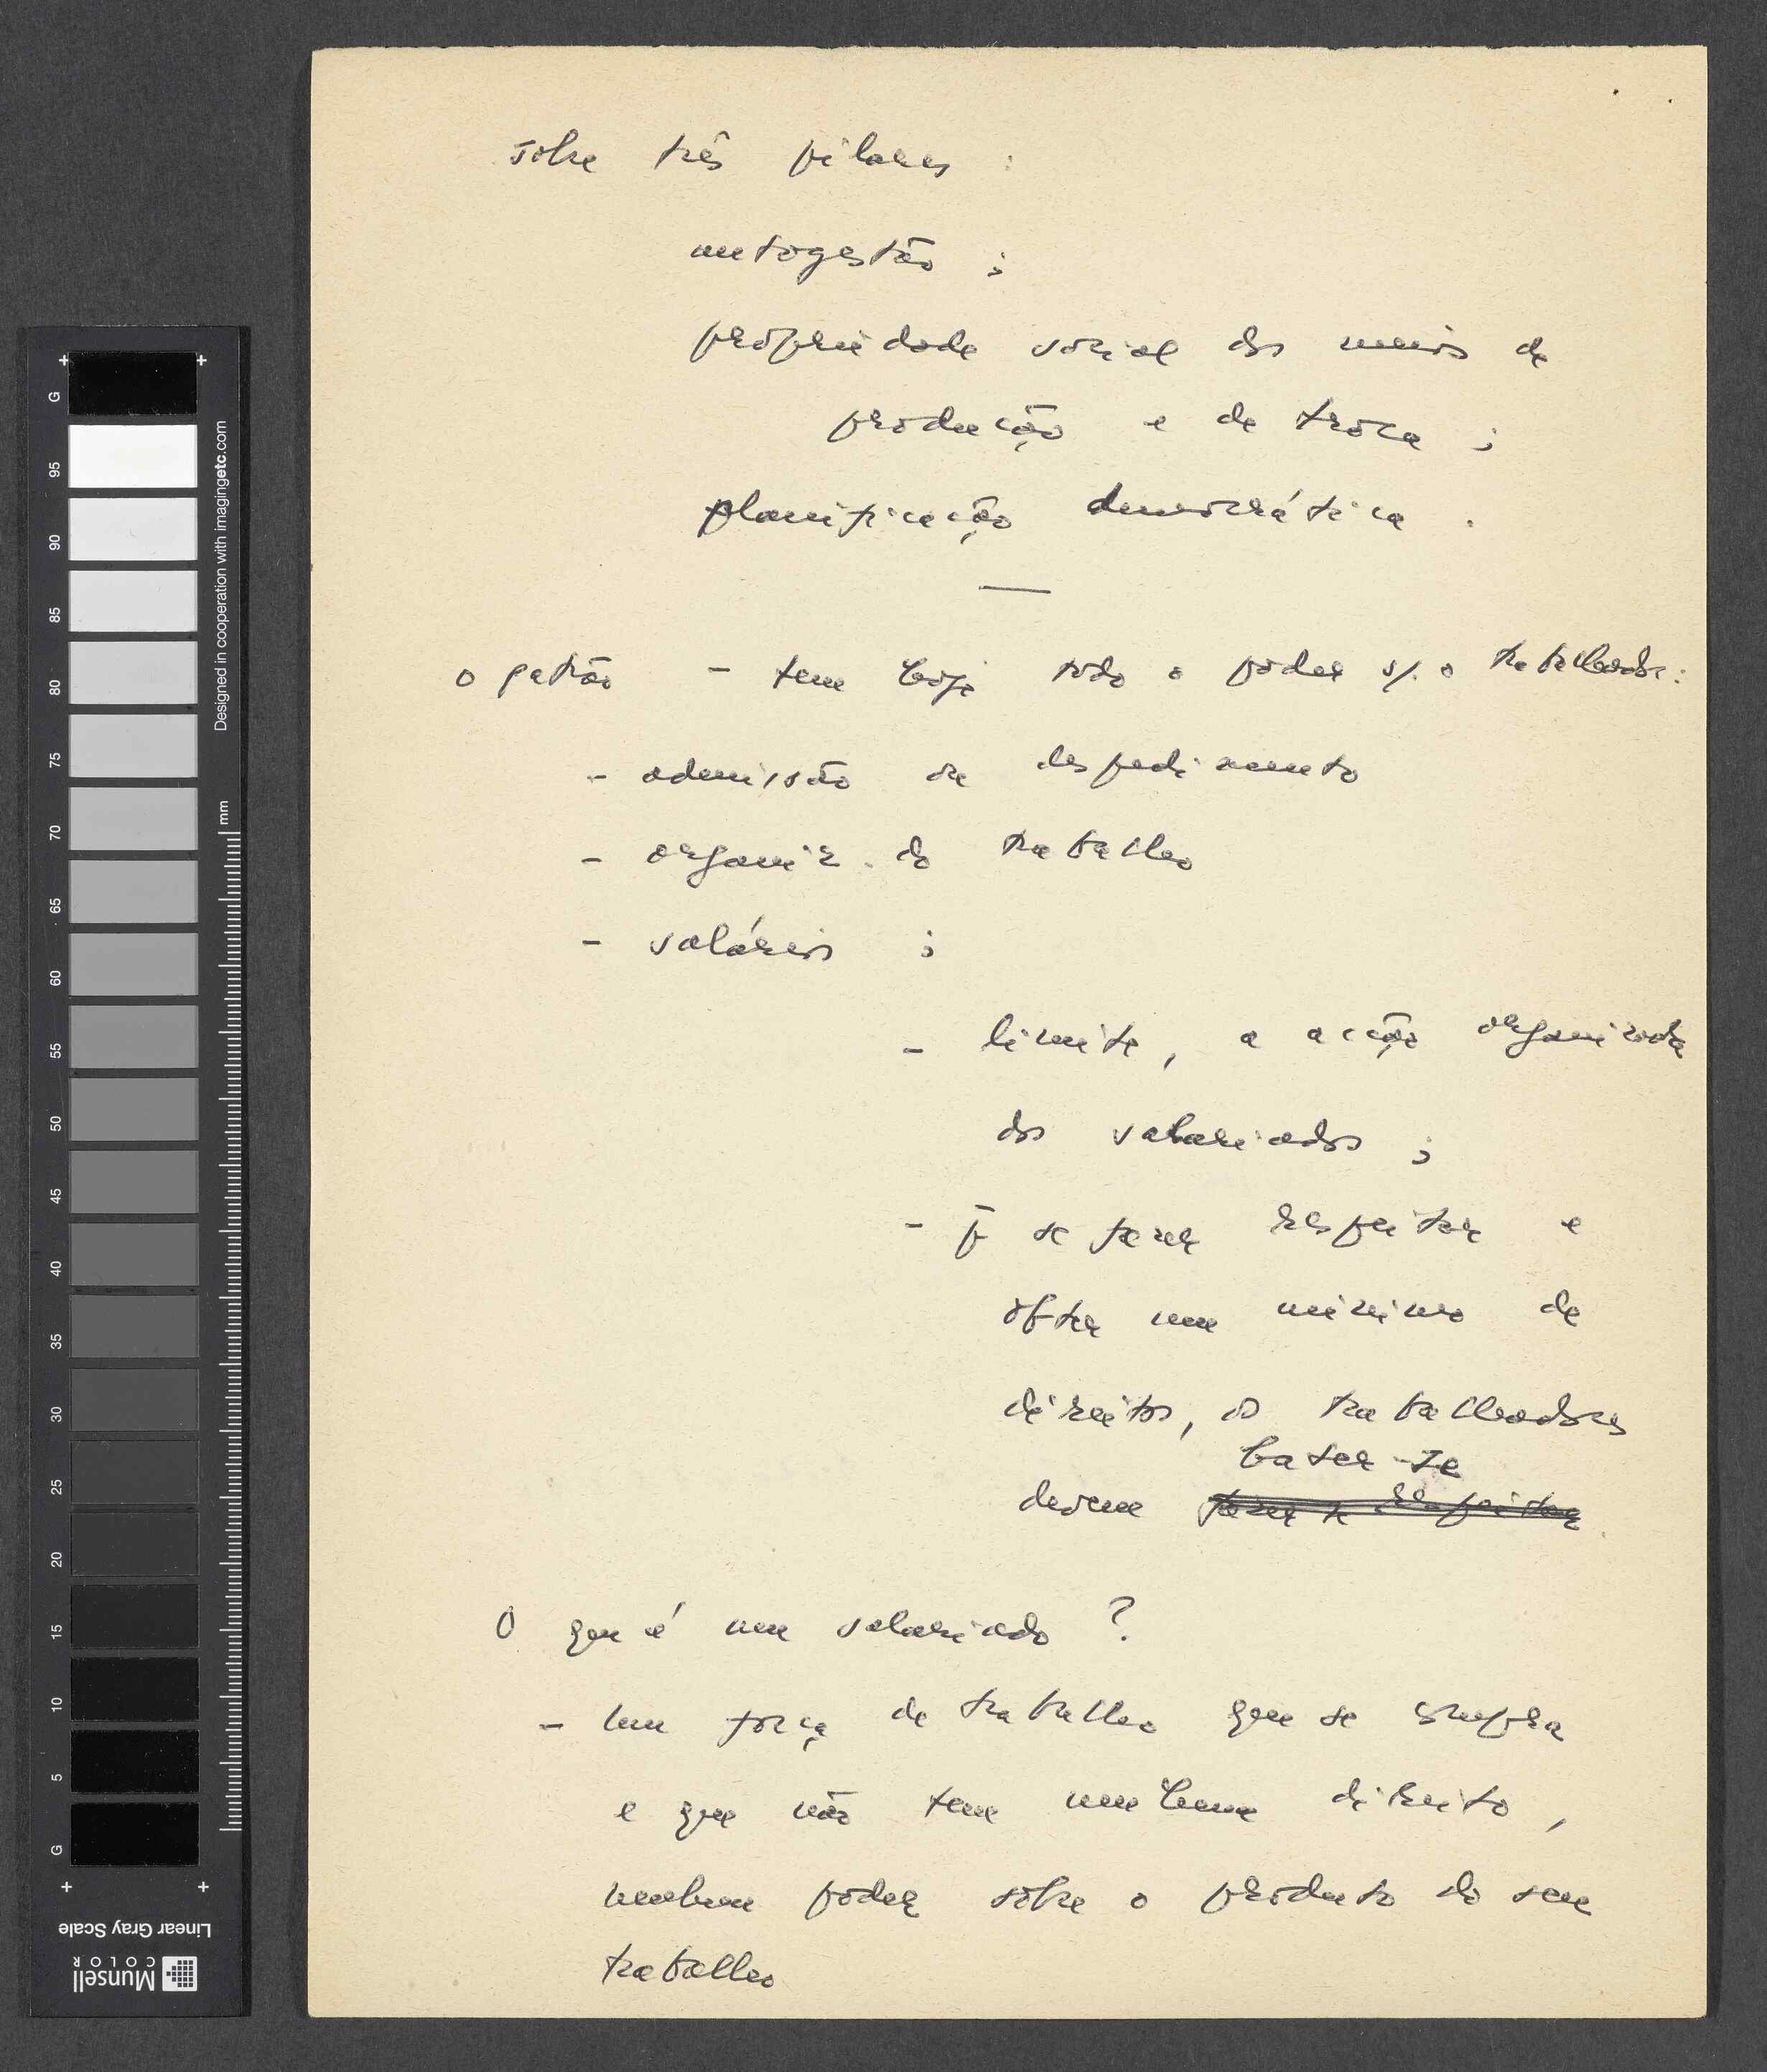 sobre três pilares :
autogestão ;
propriedade social dos meios de
produção e de troca ;
planificação democrática .
—
o patrão - tem hoje todo o poder s/. o trabalhador :
- admissão ou despedimento
- organiz. do trabalho
- salários ;
- limite, a acção organizada
dos salariados ;
- p̄ se fazer respeitar e
obter um mínimo de
direitos, os trabalhadores
bater-se
devem ~~fazer-se respeitar~~
O que é um salariado ?
- Uma força de trabalho que se compra
e que não tem nenhum direito,
nenhum poder sobre o produto do seu
trabalho
G 95 90 85 80 75 70 65 60 55 50 45 40 35 30 25 20 15 10 5 G
mm
Designed in cooperation with imagingetc.com
Linear Gray Scale
Munsell
COLOR